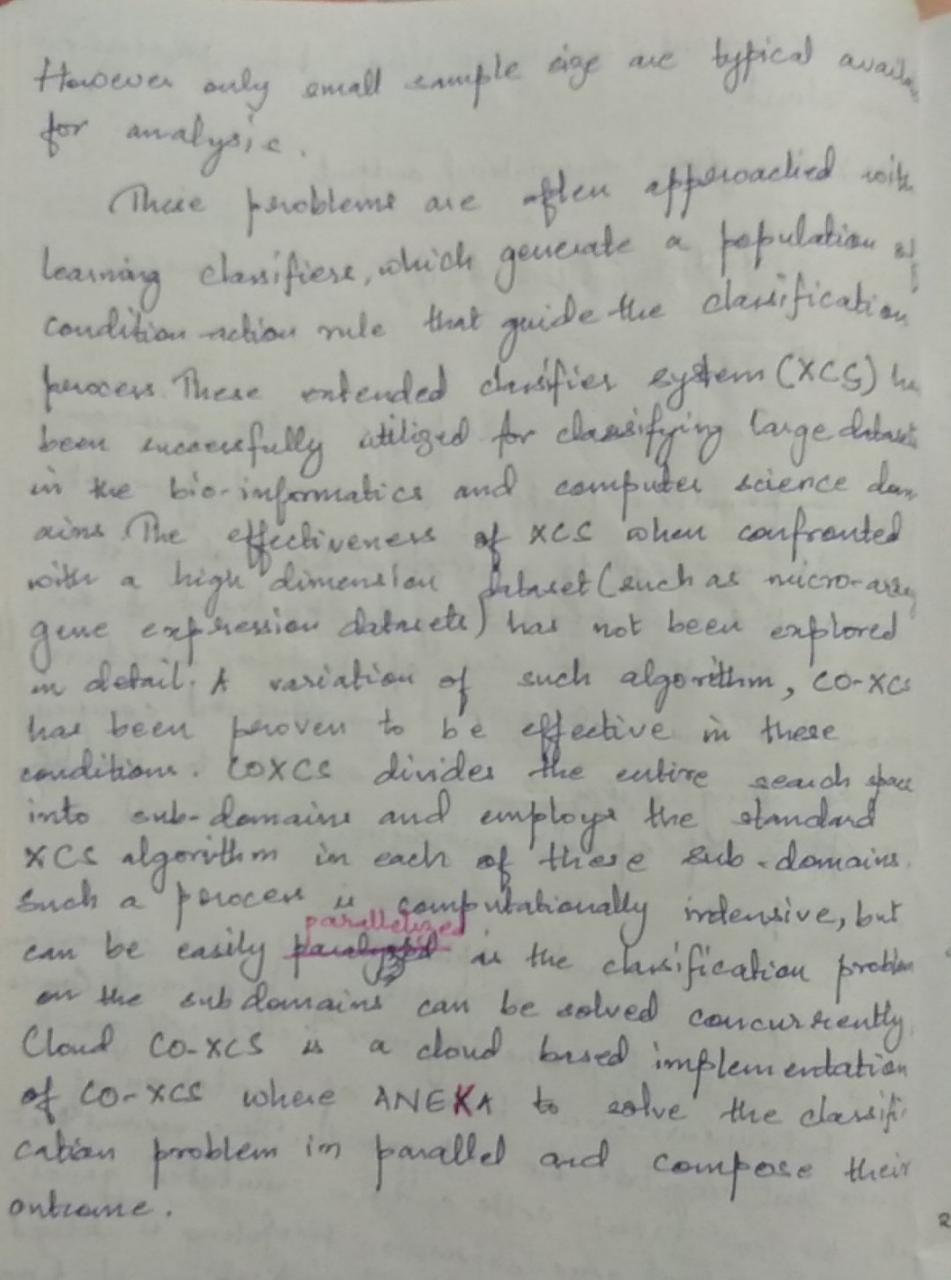 However only small sample size are typical availa
for analysis.
These problems are often approached with
learning classifiers, which generate a population of
condition-action rule that guide the classification
process. These extended classifier system (XCS) ha
been successfully utilized for classifying large dataset
in the bio-informatics and computer science dom
ains. The effectiveness of XCS when confronted
with a high dimension dataset (such as micro-array
gene expression datasets) has not been explored
in detail. A variation of such algorithm, CO-XCS
has been proven to be effective in these
conditions. COXCS divides the entire search space
into sub-domains and employs the standard
XCS algorithm in each of these sub-domains.
Such a process is computationally indensive, but
parallelized
can be easily as the classification problem
on the subdomains can be solved concurrently
Cloud CO-XCS is a cloud based implementation
of CO-XCS where ANEKA to solve the classifi
cation problem in parallel and compose their
outcome.
2